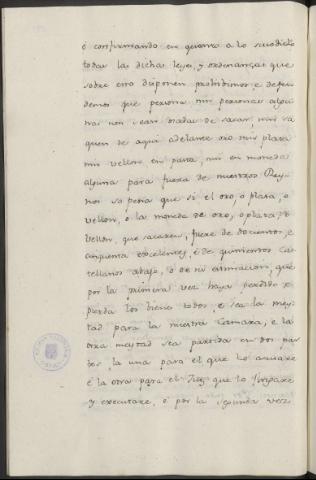 é confirmando en quanto a lo susodicho
todas las dichas leyes, y ordenanças que
sobre esto disponen prohibimos e defen
demos que persona nin personas algu
nas non sean osadas de sacar, nin sa
quen de aqui adelante oro nin plata
nin vellon en pasta, nin en moneda
alguna para fuera de nuestros Rey
nos so pena que si el oro, o plata, o
vellon, o la moneda de oro, o plata, o
vellon, que sacaren, fuere de docientos, e
cinquenta excelentes, é de quinientos Cas
tellanos abajo, o de su estimacion, que
por la primera vez haya perdido e
pierda los bienes todos, e sea la mey
tad para la nuestra Camara, e la
otra meytad sea partida en dos par
tes, la una para el que lo acusare
é la otra para el Juez que lo juzgare
y executare, é por la segunda vez